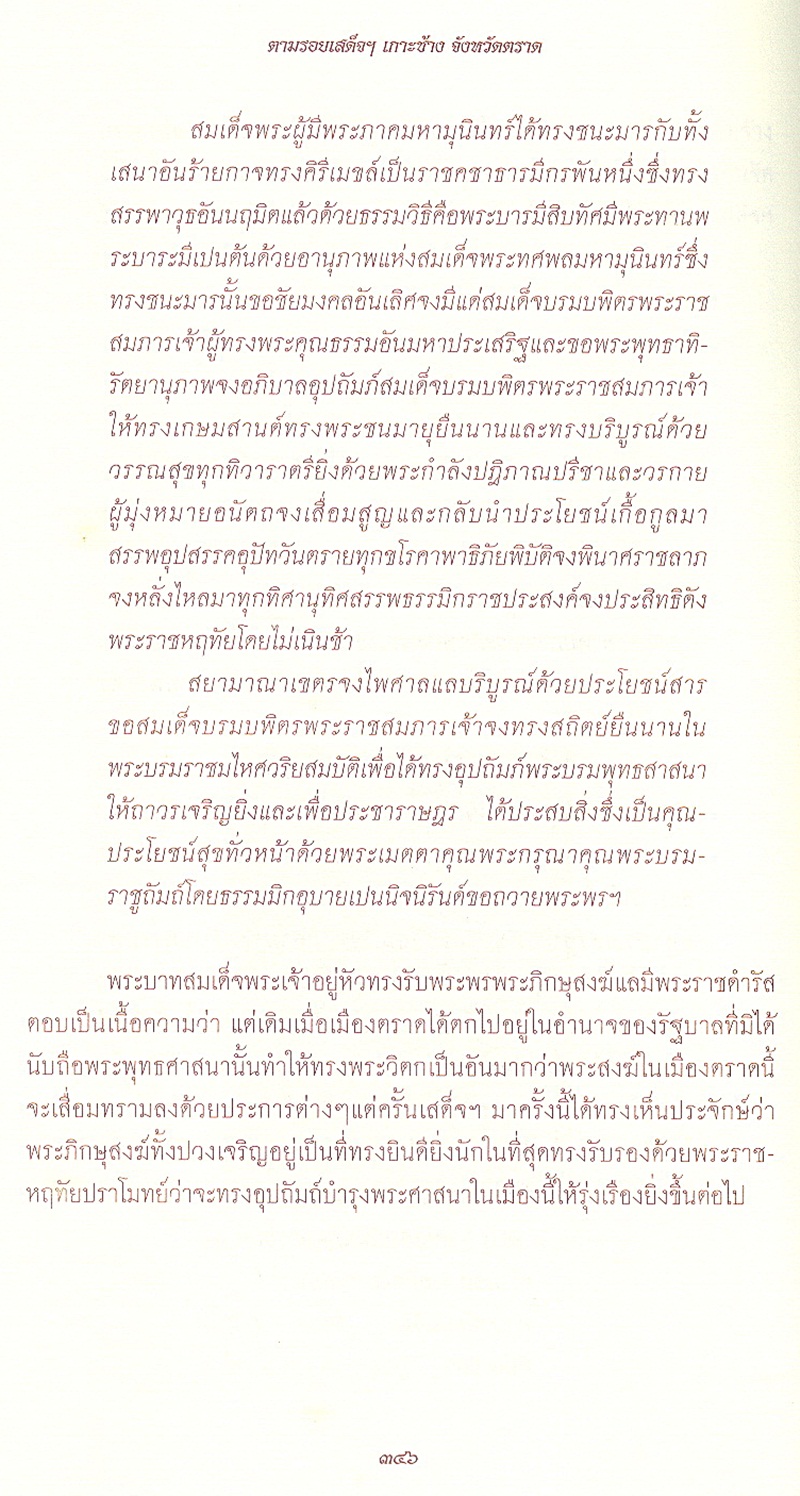 ตามรอยเสด็จฯ เกาะช้าง จังหวัดตราด
สมเด็จพระผู้มีพระภาคมหามุนินทร์ได้ทรงชนะมารกับทั้ง
เสนาอันร้ายกาจทรงคิรีเมขล์เป็นราชคชาธารมีกรพันหนึ่งซึ่งทรง
สรรพาวุธอันนฤมิตแล้วด้วยธรรมวิธีคือพระบารมีสิบทัศมีพระทานพ
ระบาระมีเปนต้นด้วยอานุภาพแห่งสมเด็จพระทศพลมหามุนินทร์ซึ่ง
ทรงชนะมารนั้นขอชัยมงคลอันเลิศจงมีแด่สมเด็จบรมบพิตรพระราช
สมภารเจ้าผู้ทรงพระคุณธรรมอันมหาประเสริฐและขอพระพุทธาทิ-
รัตยานุภาพจงอภิบาลอุปถัมภ์สมเด็จบรมบพิตรพระราชสมภารเจ้า
ให้ทรงเกษมสานต์ทรงพระชนมายุยืนนานและทรงบริบูรณ์ด้วย
วรรณสุขทุกทิวาราตรียิ่งด้วยพระกำลังปฏิภาณปรีชาและวรกาย
ผู้มุ่งหมายอนัตถจงเสื่อมสูญและกลับนำประโยชน์เกื้อกูลมา
สรรพอุปสรรคอุปัทวันตรายทุกขโรคาพาธิภัยพิบัติจงพินาศราชลาภ
จงหลั่งไหลมาทุกทิศานุทิศสรรพธรรมิกราชประสงค์จงประสิทธิดัง
พระราชหฤทัยโดยไม่เนินช้า
สยามาณาเขตรจงไพศาลแลบริบูรณ์ด้วยประโยชน์สาร
ขอสมเด็จบรมบพิตรพระราชสมภารเจ้าจงทรงสถิตย์ยืนนานใน
พระบรมราชมไหศวริยสมบัติเพื่อได้ทรงอุปถัมภ์พระบรมพุทธสาสนา
ให้ถาวรเจริญยิ่งและเพื่อประชาราษฎร ได้ประสบสิ่งซึ่งเป็นคุณ-
ประโยชน์สุขทั่วหน้าด้วยพระเมตตาคุณพระกรุณาคุณพระบรม-
ราชูถัมถ์โดยธรรมมิกอุบายเปนนิจนิรันด์ขอถวายพระพรฯ
พระบาทสมเด็จพระเจ้าอยู่หัวทรงรับพระพรพระภิกษุสงฆ์แลมีพระราชดำรัส
ตอบเป็นเนื้อความว่า แต่เดิมเมื่อเมืองตราดได้ตกไปอยู่ในอำนาจของรัฐบาลที่มิได้
นับถือพระพุทธศาสนานั้นทำให้ทรงพระวิตกเป็นอันมากว่าพระสงฆ์ในเมืองตราดนี้
จะเสื่อมทรามลงด้วยประการต่างๆแต่ครั้นเสด็จฯ มาครั้งนี้ได้ทรงเห็นประจักษ์ว่า
พระภิกษุสงฆ์ทั้งปวงเจริญอยู่เป็นที่ทรงยินดียิ่งนักในที่สุดทรงรับรองด้วยพระราช-
หฤทัยปราโมทย์ว่าจะทรงอุปถัมถ์บำรุงพระศาสนาในเมืองนี้ให้รุ่งเรืองยิ่งขึ้นต่อไป
๓๔๖